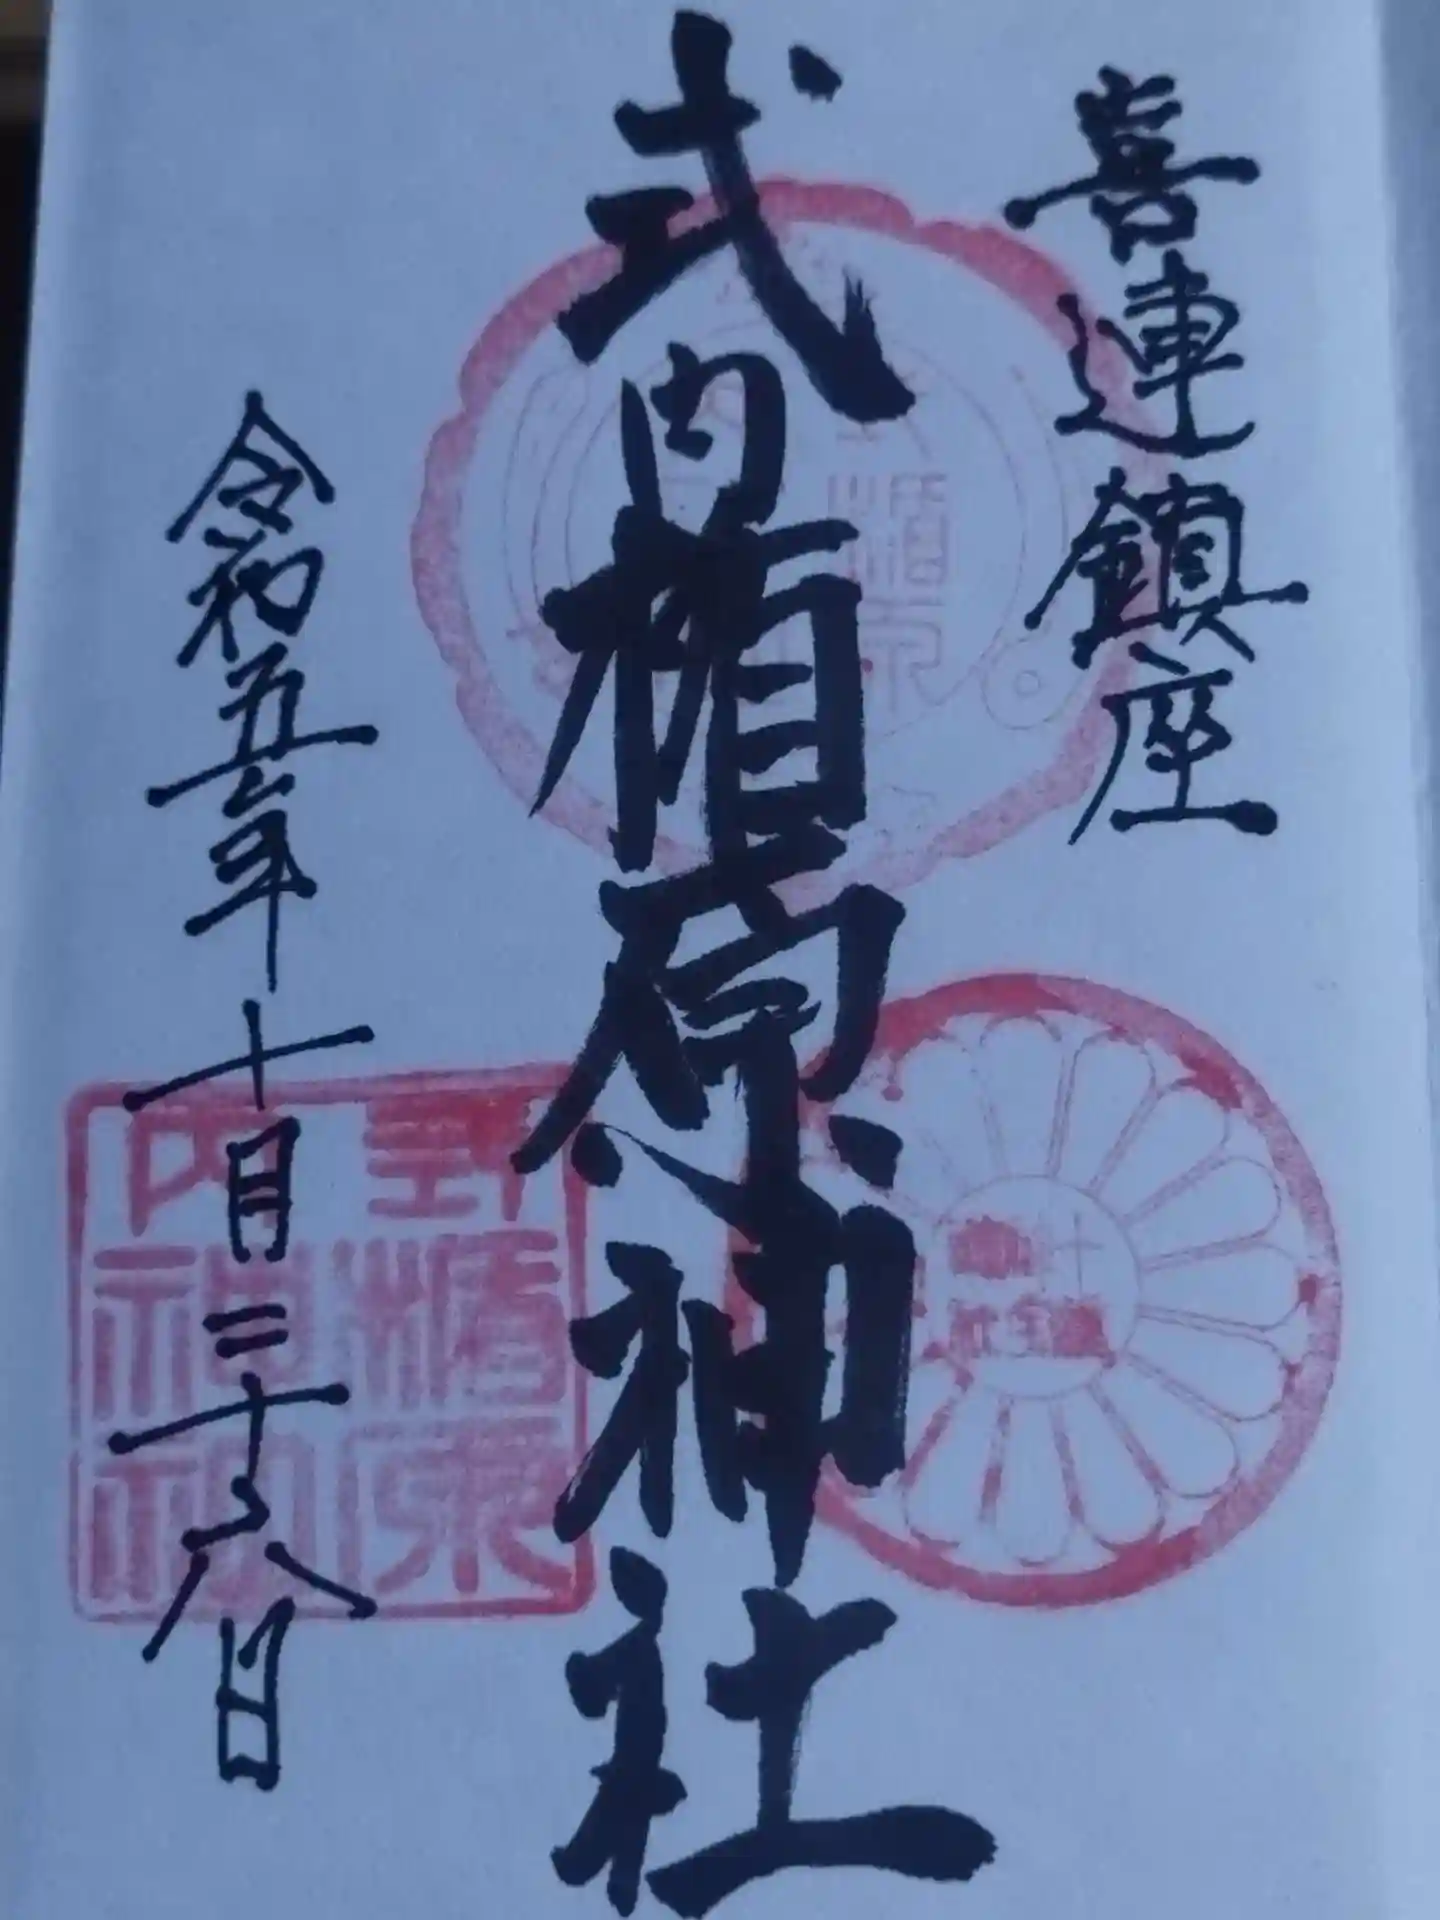 喜連鎮座
式内楯原神社
令和五年十月二十八日
式内楯原神社